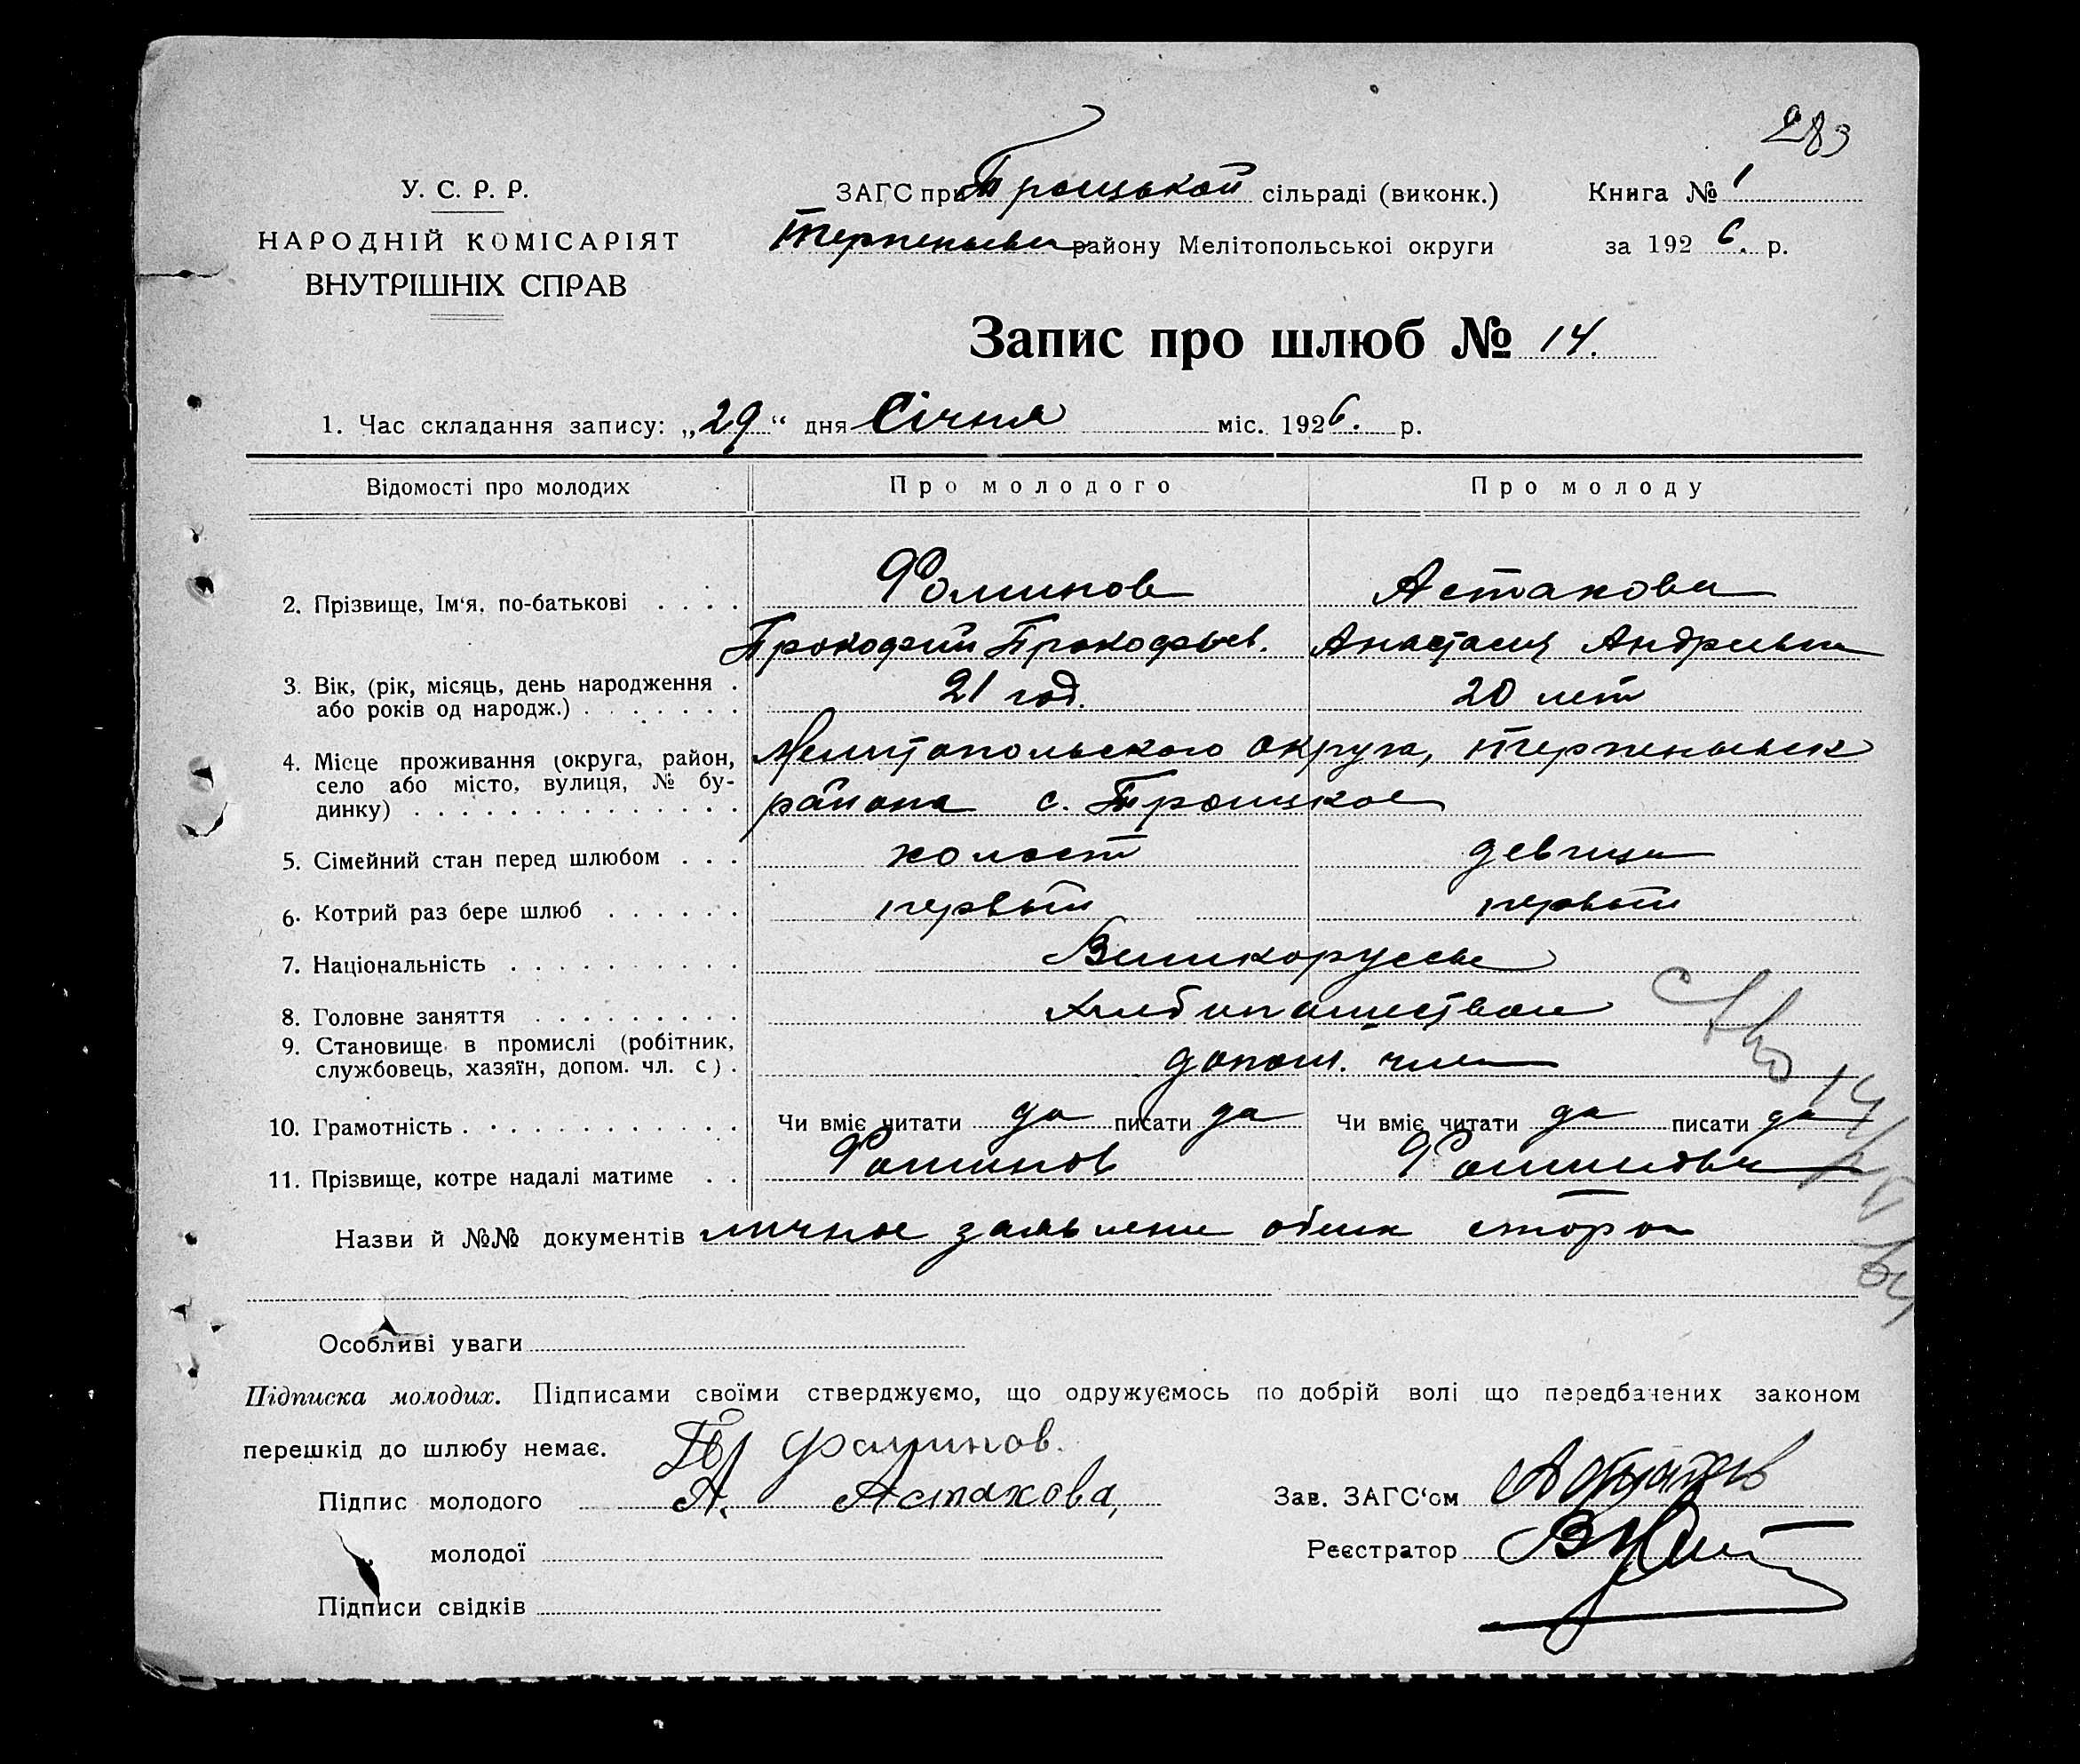 283
У. С. Р. Р.
НАРОДНІЙ КОМІСАРІЯТ
ВНУТРІШНІХ СПРАВ
ЗАГС при Троцькой сільраді (виконк.)
Терпеньев району Мелітопольської округи
Книга № 1
за 1926. р.
Запис про шлюб № 14.
1. Час складання запису: „29“ дня Січня міс. 1926. р.
Відомості про молодих Про молодого Про молоду
2. Прізвище, Ім'я, по-батькові . . . . Фоминов Астахова
Прокофий Прокофьев. Анастасия Андреевна
3. Вік, (рік, місяць, день народження . 21 год. 20 лет
або років од народж.) . . . . . . .
4. Місце проживання (округа, район, Мелитопольского округа, Терпеньевск
село або місто, вулиця, № бу-
динку) . . . . . . . . . . . . . . района с. Троицкое
5. Сімейний стан перед шлюбом . . . холост девица
6. Котрий раз бере шлюб . . . . . . первый первый
7. Національність . . . . . . . . . . Великоруссы
8. Головне заняття . . . . . . . . . Хлебопашеством
9. Становище в промислі (робітник,
службовець, хазяїн, допом. чл. с). допом. член
10. Грамотність . . . . . . . . . . . . Чи вміє читати да писати да Чи вміє читати да писати да
11. Прізвище, котре надалі матиме . . Фоминов Фоминова
Назви й №№ документів личное заявление обеих сторон
Особливі уваги
Підписка молодих. Підписами своїми стверджуємо, що одружуємось по добрій волі що передбачених законом
перешкід до шлюбу немає. Фоминов.
Підпис молодого А. Астахова,
молодої
Підписи свідків
Зав. ЗАГС'ом
Реєстратор